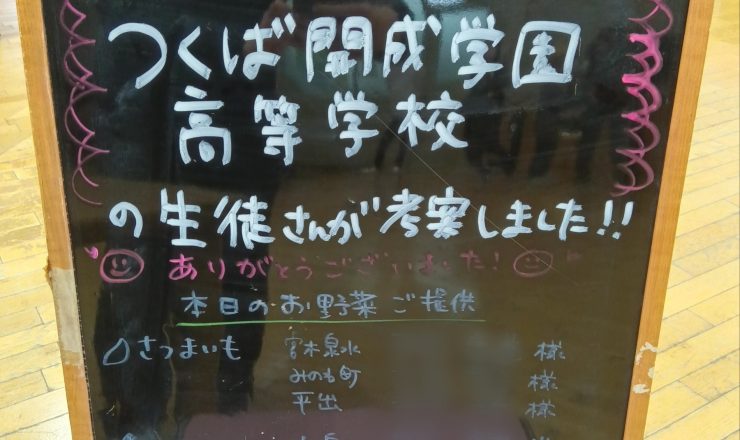 つくば開成学園
高等学校
の生徒さんが考案しました!!
ありがとうございました!
本日のお野菜ご提供
さつまいも 宮木泉水 様
みのわ町 様
平出 様